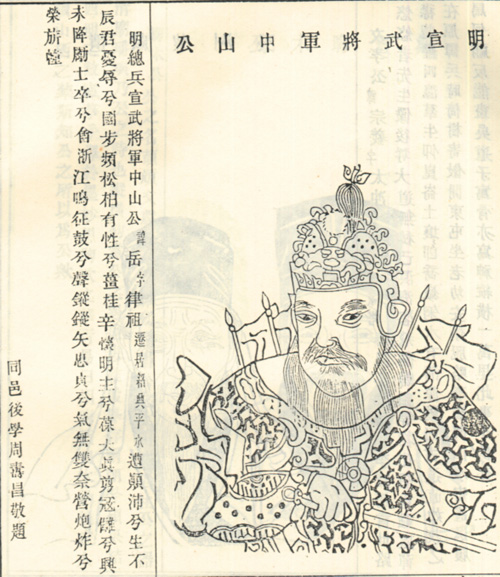 明宣武將軍中山公
明總兵宣武將軍中山公諱岳字律祖遷居興平水遭顛沛兮生不
辰君憂辱兮國步頻松柏有性兮薑桂辛懷明主兮葆大眞剪冠讎兮興
未降勵士卒兮會浙江鳴征鼓兮聲鏦鏦矢忠貞兮氣無雙奈營炮炸兮
榮旂幢
同邑後學周壽昌敬題